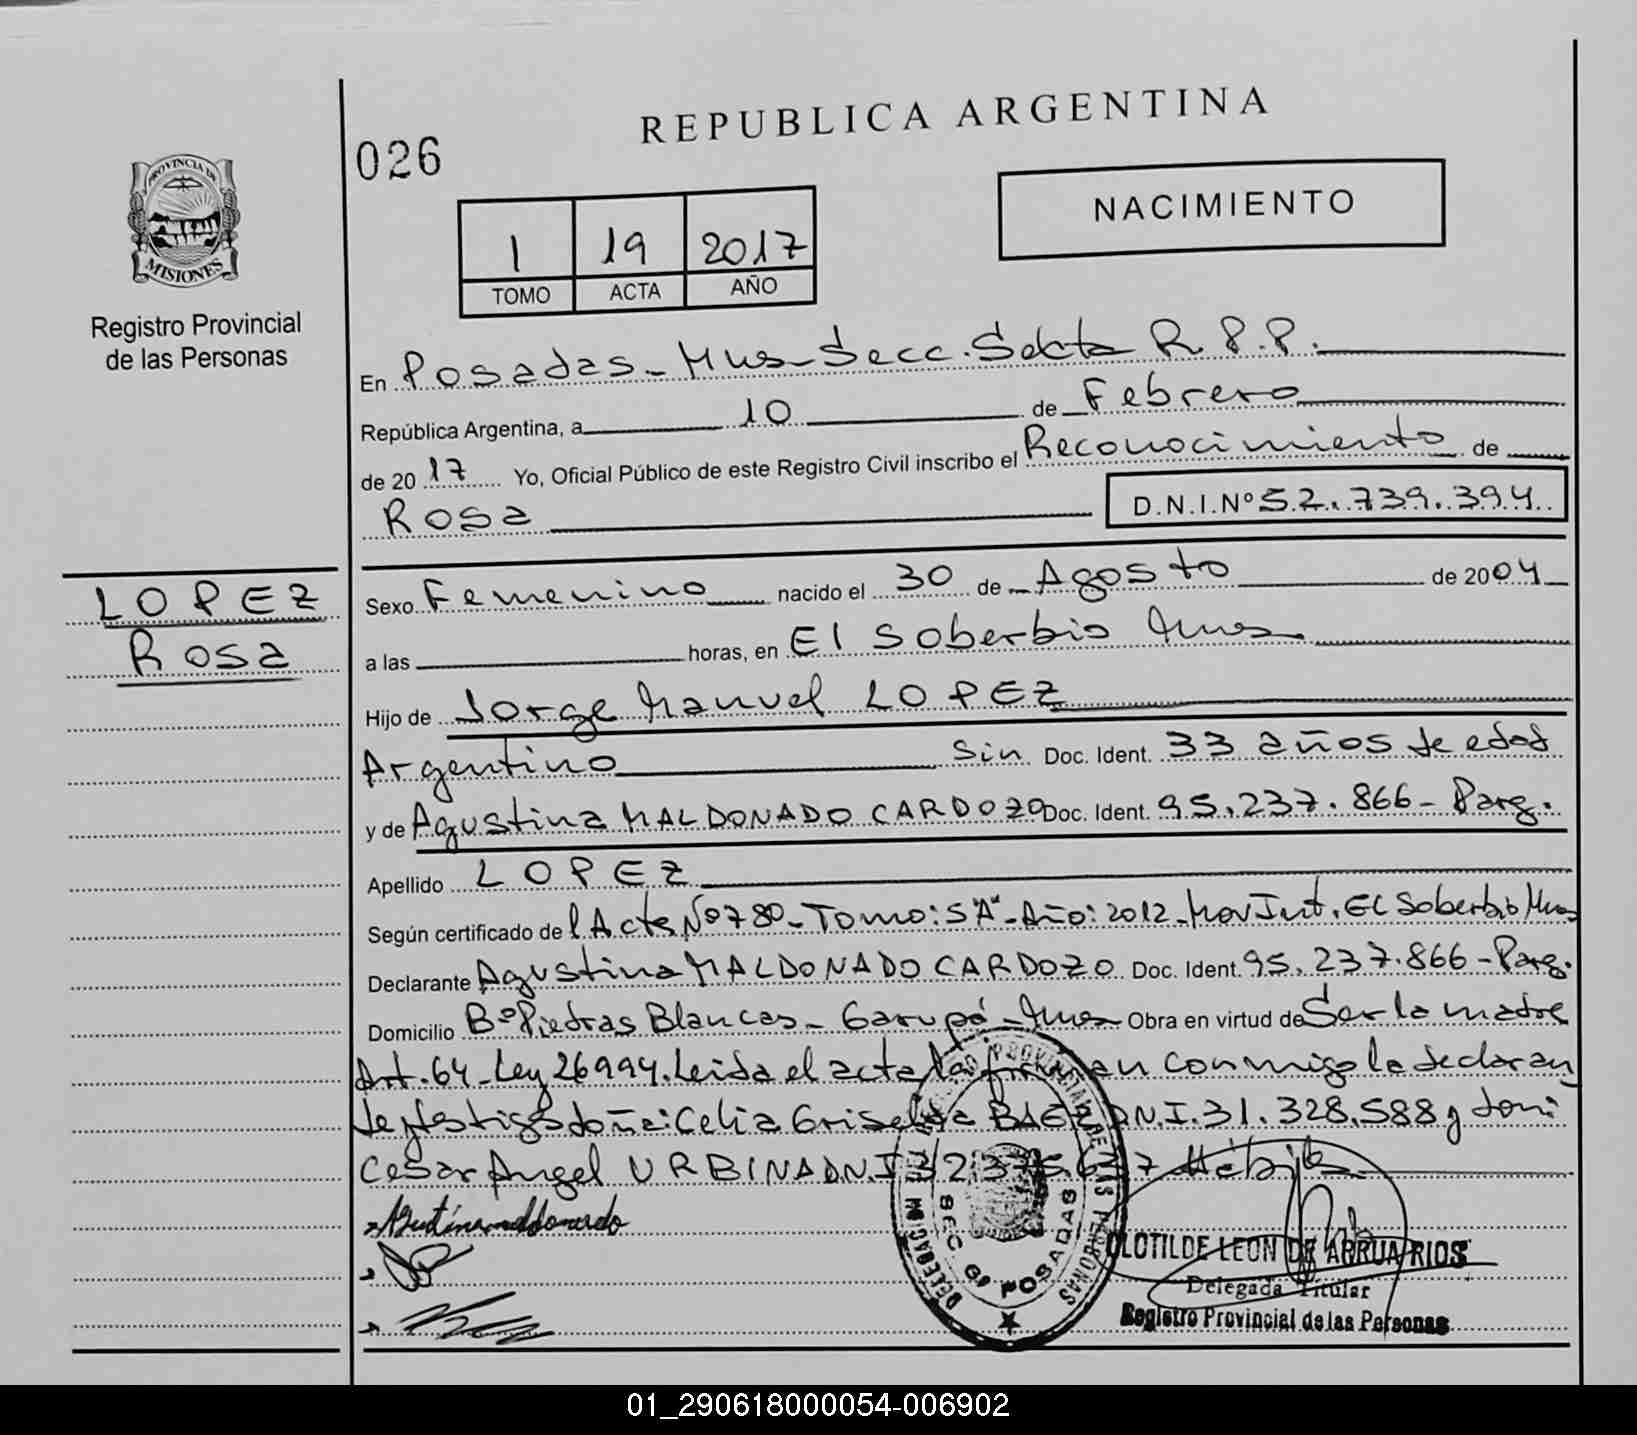 REPUBLICA ARGENTINA
026
PROVINCIA DE
MISIONES
Registro Provincial
de las Personas
NACIMIENTO
1 19 2017
TOMO ACTA AÑO
En Posadas - Mnes - Secc. Sexta R.P.P.
República Argentina, a 10 de Febrero
de 2017 Yo, Oficial Público de este Registro Civil inscribo el Reconocimiento de
Rosa D.N.I.Nº 52.739.394
LOPEZ
Rosa
Sexo Femenino nacido el 30 de Agosto de 2004
a las horas, en El Soberbio Mnes
Hijo de Jorge Manuel LOPEZ
Argentino Sin Doc. Ident. 33 años de edad
y de Agustina MALDONADO CARDOZO Doc. Ident. 95.237.866 - Parg.
Apellido LOPEZ
Según certificado de l Acta Nº 780 - Tomo: 5"A" - Año: 2012 - Mov Int. El Soberbio Mnes
Declarante Agustina MALDONADO CARDOZO Doc. Ident. 95.237.866 - Parg.
Domicilio Bº Piedras Blancas - Garupá - Mnes Obra en virtud de Ser la madre
Art. 64 - Ley 26994. Leida el acta la firman conmigo la declaran
te y testigos doña: Celia Griselda BAEZ D.N.I. 31.328.588 y don:
Cesar Angel URBINA D.N.I. Hábiles
Agustina maldonado
SECC. 6ª POSADAS
CLOTILDE LEON DE ARRUA RIOS
Delegada Titular
Registro Provincial de las Personas
01_290618000054-006902